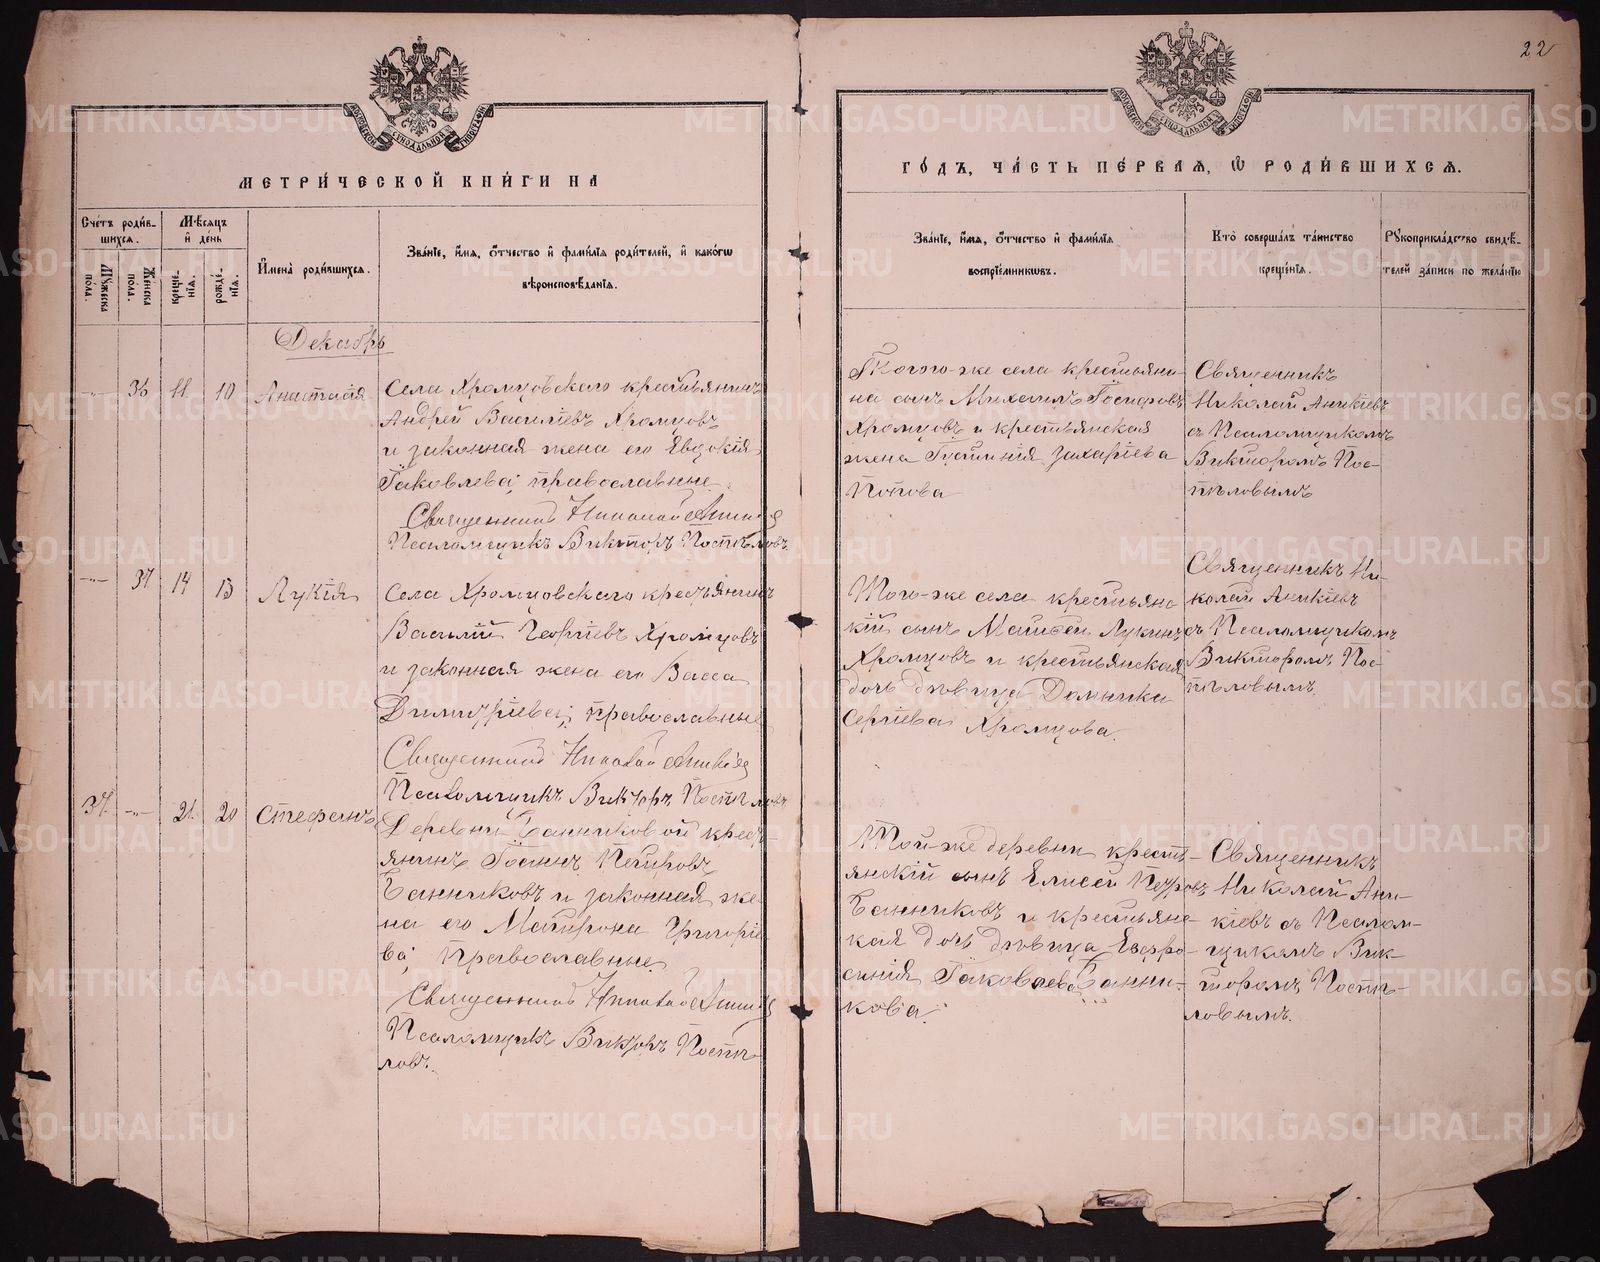 22
МОСКОВСКОЙ СѴНОДАЛЬНОЙ ТИПОГРАФІИ
МОСКОВСКОЙ СѴНОДАЛЬНОЙ ТИПОГРАФІИ
МЕТРИ́ЧЕСКОЙ КНИ́ГИ НА
ГО́ДЪ, ЧА́СТЬ ПЕ́РВАЯ, Ѡ РОДИ́ВШИХСЯ.
Сче́тъ роди́в-
шихся.
Мѣ́сяцъ
и де́нь
Му́жеска
по́ла.
Же́нска
по́ла.
креще́-
нія.
рожде́-
нія.
Имена̀ роди́вшихся.
Зва́ніе, и́мя, о́тчество и фами́лія роди́телей, и како́гѡ
вѣроисповѣ́данія.
Зва́ніе, и́мя, о́тчество и фами́лія
воспріе́мниковъ.
Кто̀ соверша́лъ та́инство
креще́нія.
Рукоприкла́дство свидѣ́-
телей за́писи по жела́нію
Декабрь
—"— 36 11 10 Анастасія
Села Хромцовскаго крестьянинъ
Андрей Василіевъ Хромцовъ
и законная жена его Евдокія
Іаковлева; православные.
Священникъ Николай Аникіев
Псаломщикъ Викторъ Поспѣловъ
Того-же села крестьяни-
на сынъ Михаилъ
Хромцовъ и крестьянская
жена Іустинія Захаріева
Попова
Священникъ
Николай Аникіевъ
съ Псаломщикомъ
Викторомъ Пос-
пѣловымъ
—"— 37 14 13 Лукія
Села Хромцовскаго крестьянинъ
Василій Георгіевъ Хромцовъ
и законная жена его Васса
Димитріева; православные
Священникъ Николай Аникіев
Псаломщикъ Викторъ Поспѣловъ
Того-же села крестьянс
кій сынъ Матвѣй Лукинъ
Хромцовъ и крестьянская
дочь дѣвица Домника
Сергіева Хромцова.
Священникъ Ни-
колай Аникіевъ
съ Псаломщикомъ
Викторомъ Пос-
пѣловымъ.
37. —"— 21. 20 Стефанъ
Деревни Банниковой крест-
янинъ Іоаннъ Петровъ
Банниковъ и законная же-
на его Матрона Григоріе
ва; Православные.
Священникъ Николай Аникіев
Псаломщикъ Викторъ Поспѣ-
ловъ.
Той-же деревни кресть-
янскій сынъ Елисей Петровъ
Банниковъ и крестьянс-
кая дочь дѣвица Евфро-
синія Іаковлева Банни-
кова.
Священникъ
Николай Ани-
кіевъ съ Псалом-
щикомъ Вик-
торомъ Поспѣ-
ловымъ.
METRIKI.GASO-URAL.RU